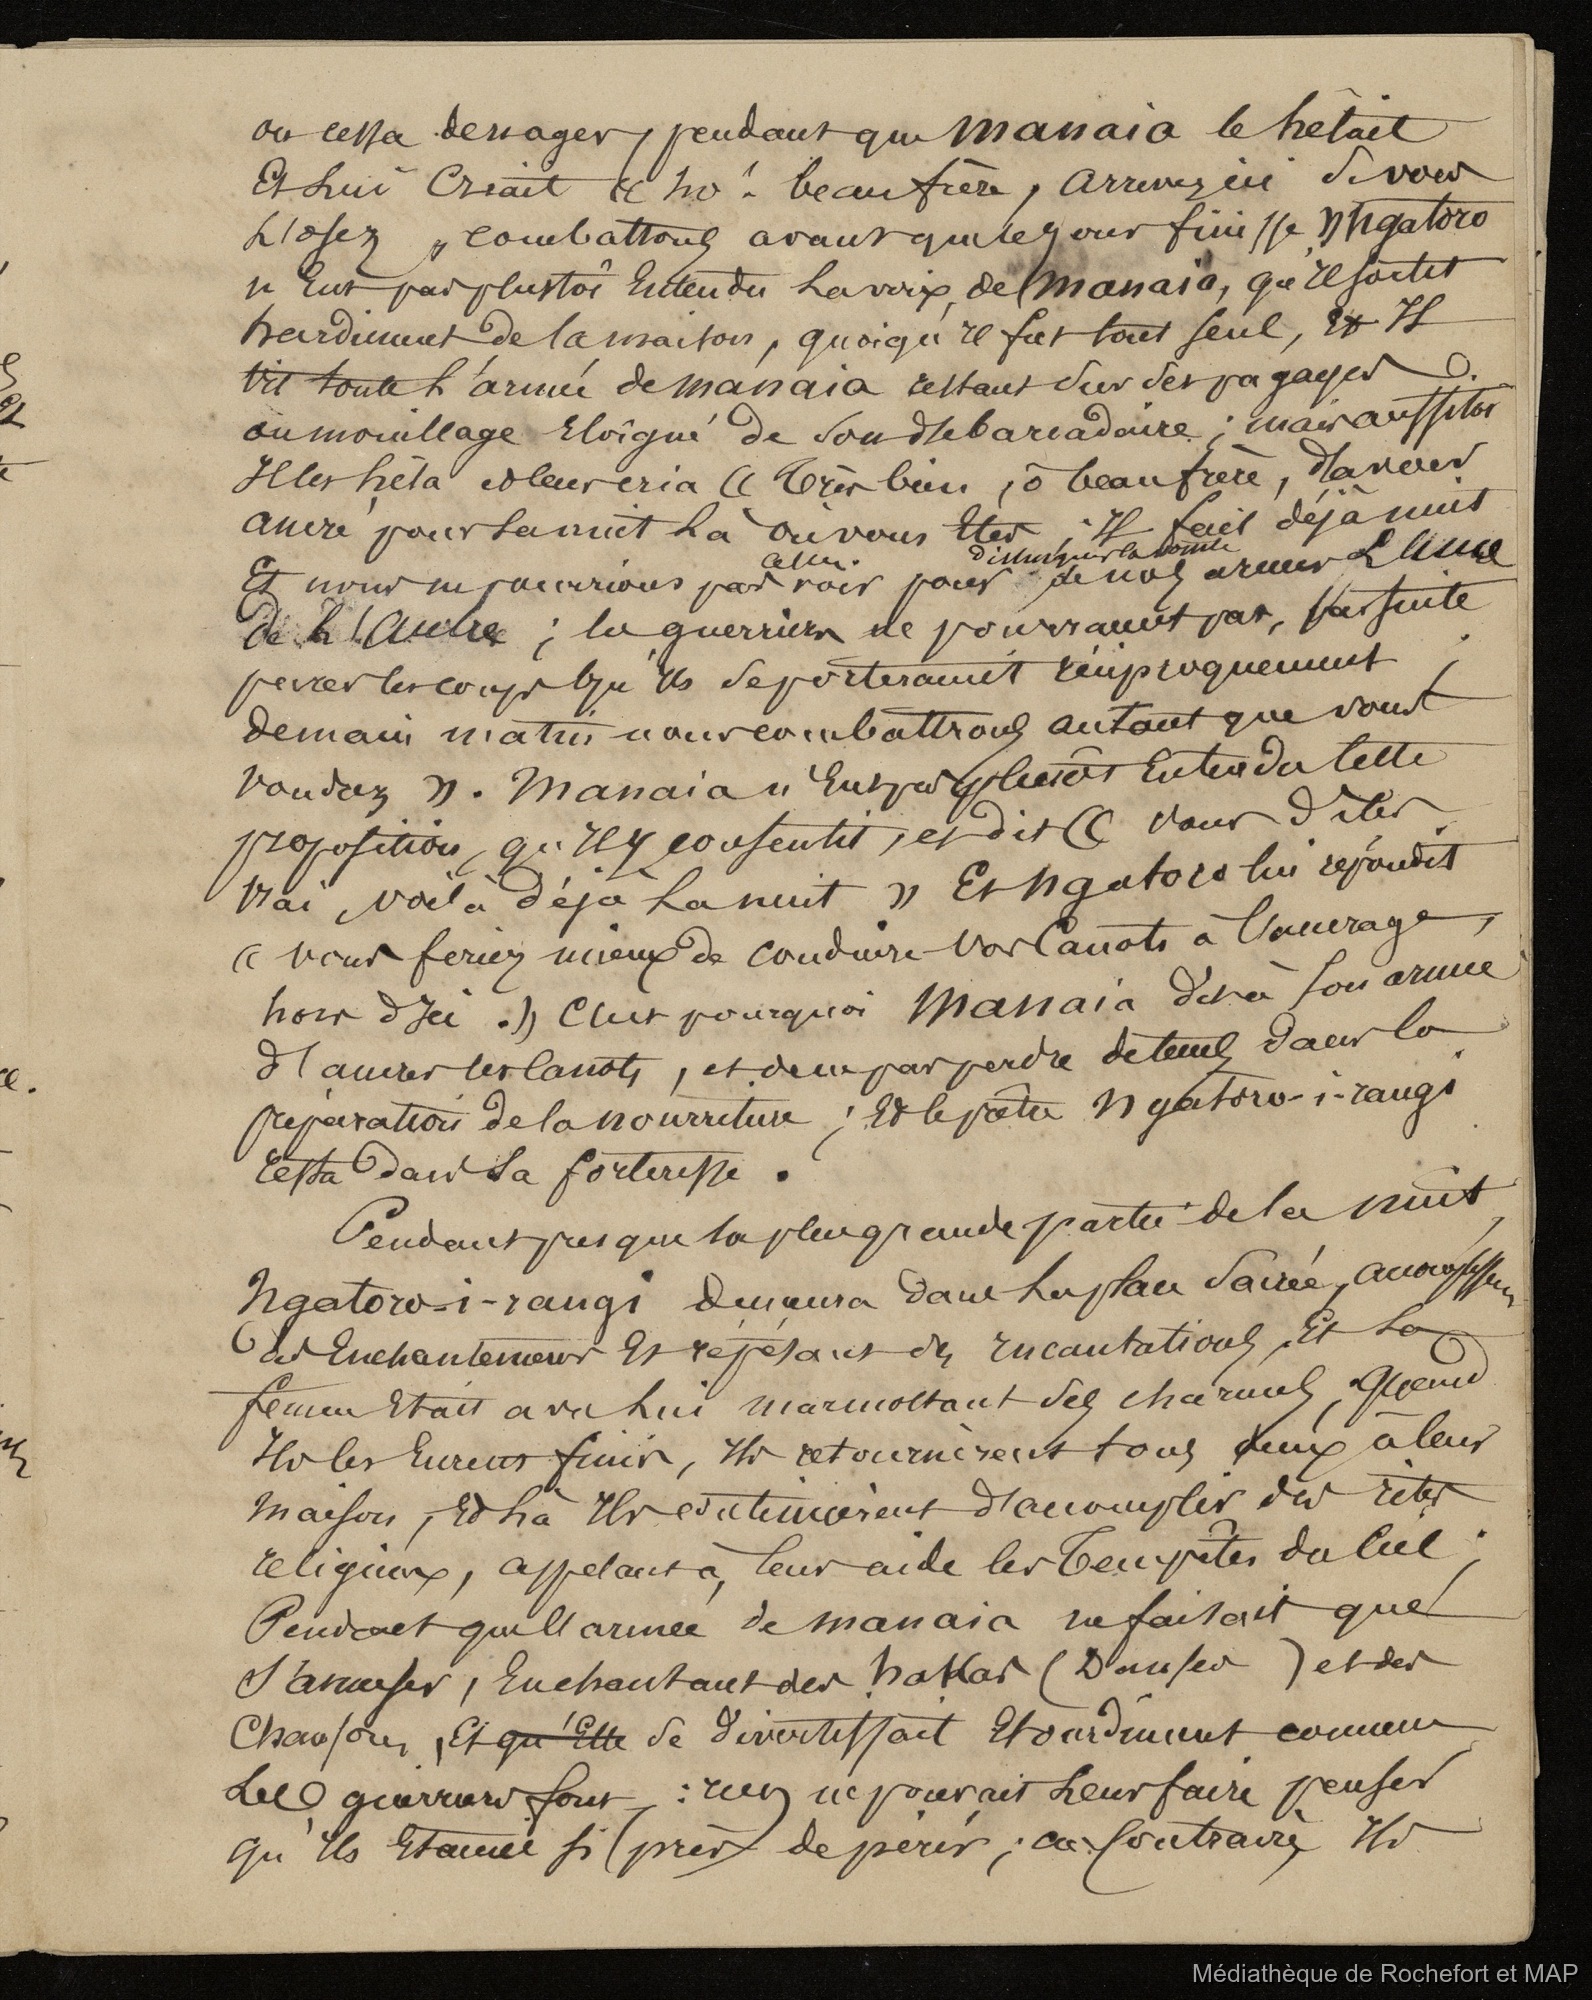 on cessa de nager, pendant que Manaia le hélait
Et lui criait « ho ! beau frère, arrivez ici si vous
L'osez, combattons avant que le jour finisse » Ngatoro
n'Eut pas plustôt Entendu La voix de Manaia, qu'Il sortit
hardiment de la maison, quoiqu'Il fut tout seul, Et Il
vit toute L'armée de Manaia restant sur ses pagayes
au mouillage Eloigné de son débarcadaire ; mais aussitôt
Il les héla et leur cria « Très bien, ô beau frère, d'avoir
ancré pour La nuit Là où vous Etes ; Il fait déjà nuit
Et nous ne pourrions pas voir pour de nos armes L'une
distinguer la pointe
De L'Autre ; les guerriers ne pourraient pas, par suite
parer les coups qu'Ils se porteraient réciproquement ;
demain matin nous combattrons autant que vous
voudrez ». Manaia n'Eut pas plustôt Entendu Cette
proposition, qu'Il y consentit, et dit « vous dites
vrai, voilà déjà La nuit » Et Ngatoro lui répondit
« vous feriez mieux de conduire vos Canots à l'ancrage,
hors d'Ici .» C'est pourquoi Manaia dit à son armée
d'ancrer les Canots, et de ne pas perdre de temps dans la
préparation de la nourriture ; Et le prêtre Ngatoro-i-rangi
resta dans La forteresse.
Pendant presque la plus grande partie de la nuit,
Ngatoro-i-rangi demeura dans La place Sacrée, accomplissant
des Enchantements Et répétant des Incantations, Et Sa
femme Etait avec Lui marmottant des charmes, Quand
Ils les Eurent finis, Ils retournèrent tous deux à leur
Maison, Et Là Ils continuèrent d'accomplir des rites
religieux, appelant à leur aide les Tempêtes du Ciel ;
Pendant que L'armée de Manaia ne faisait que
S'amuser, En chantant des hakas (Danses) et des
Chansons, Et qu'Elle se divertissait Etourdiment comme
Les guerriers font : rien ne pouvait Leur faire penser
qu'Ils Etaient si près de périr ; au Contraire Ils
Médiathèque de Rochefort et MAP